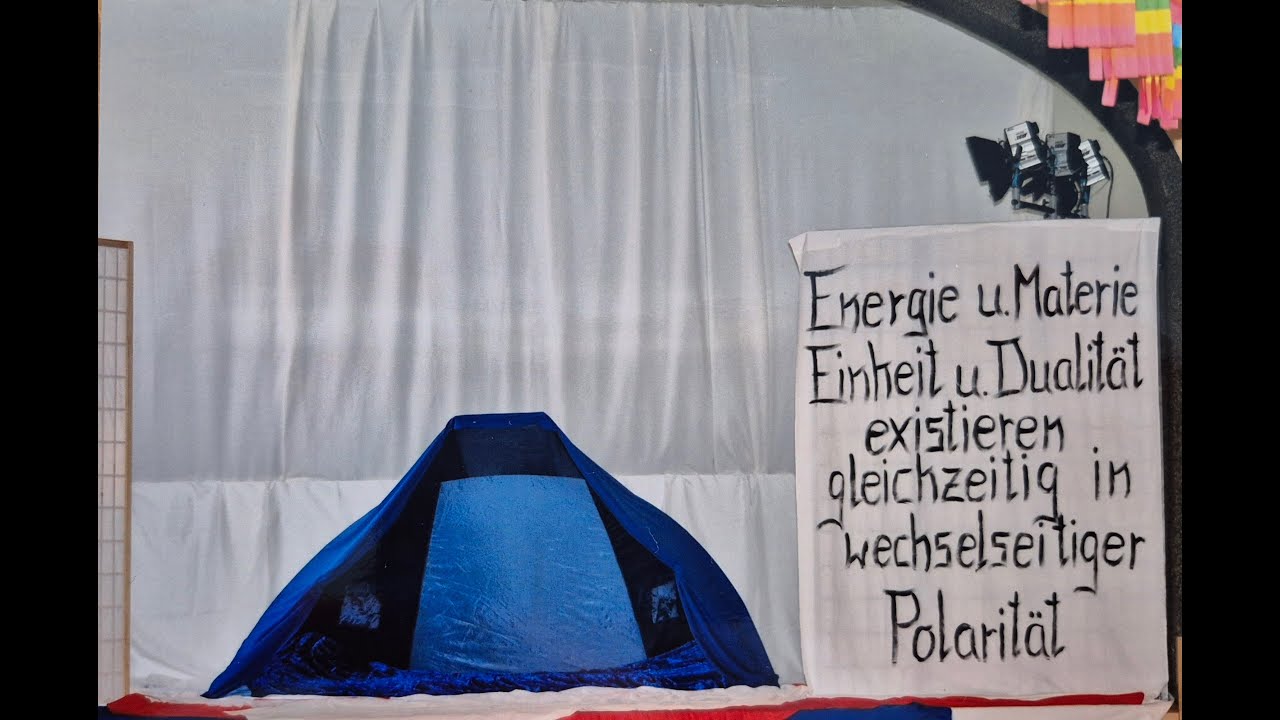 Energie u. Materie
Einheit u. Dualität
existieren
gleichzeitig in
wechselseitiger
Polarität